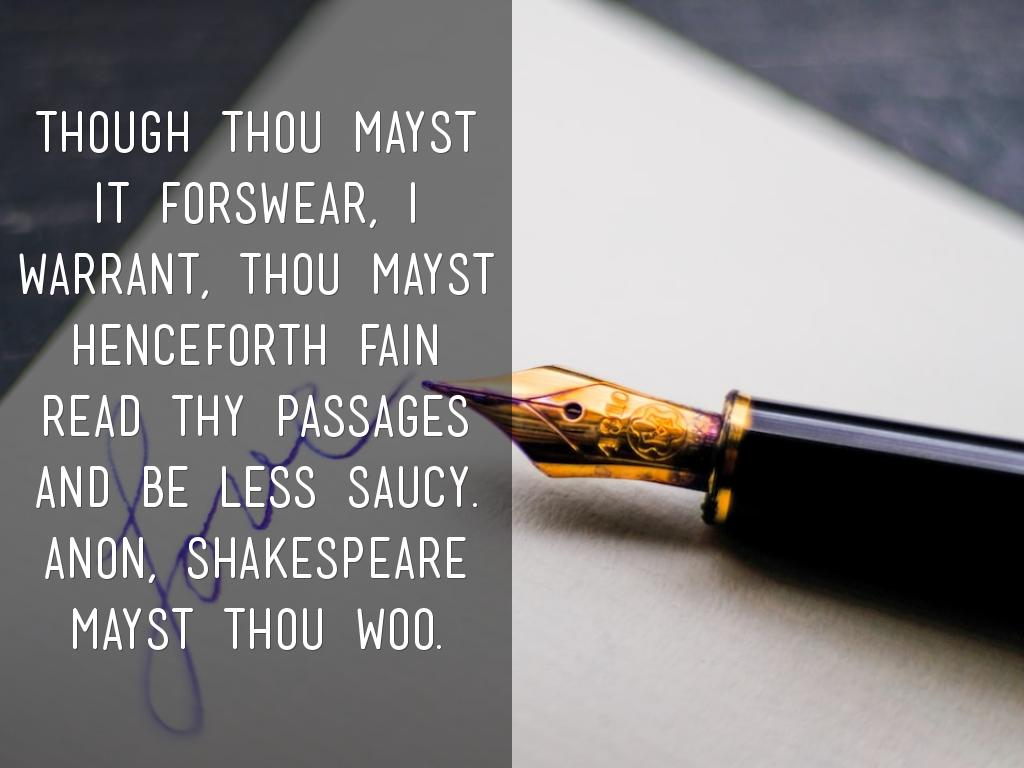 THOUGH THOU MAYST
IT FORSWEAR, I
WARRANT, THOU MAYST
HENCEFORTH FAIN
READ THY PASSAGES
AND BE LESS SAUCY.
ANON, SHAKESPEARE
MAYST THOU WOO.
Love
4810